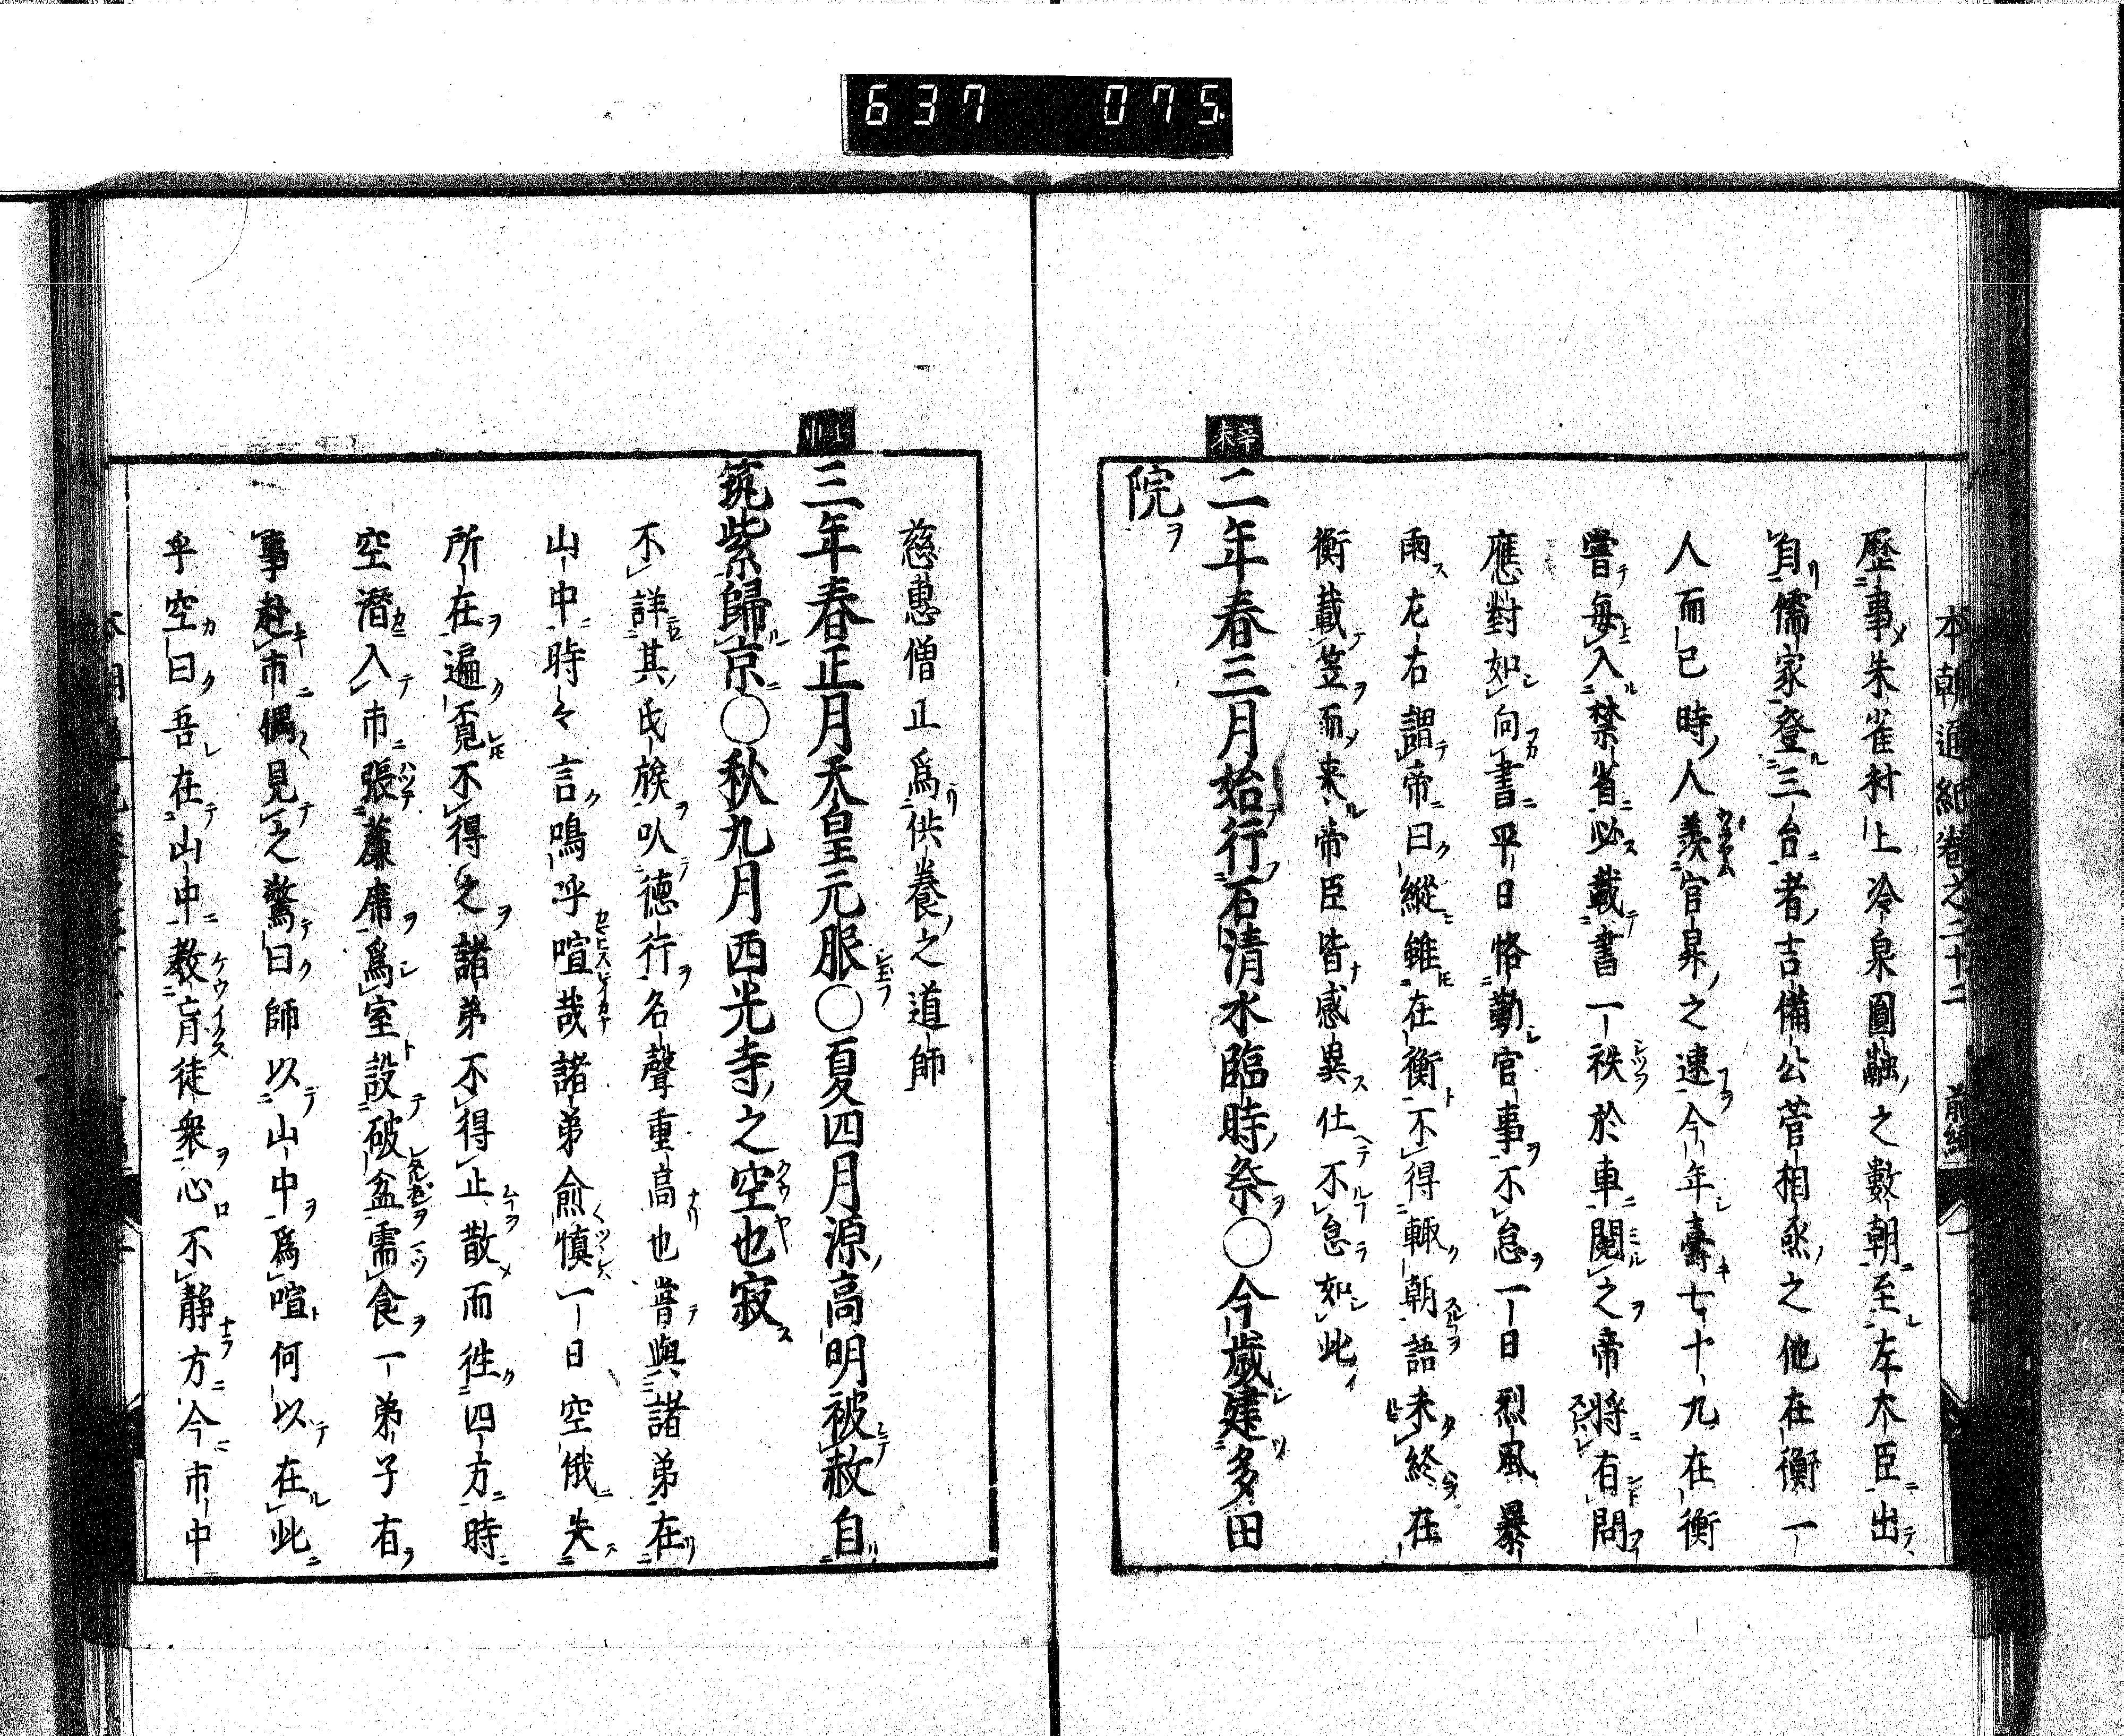 637 075
本朝通紀卷之二十二 前編
歷事朱雀村上冷泉圓融之數朝至左大臣出
自儒家登三台者吉備公菅相丞之他在衡一
人而已時人羨官昇之速今年壽七十九在衡
嘗每入禁省必載書一袟於車閱之帝將有問
應對如向書平日恪勤官事不怠一日烈風暴
雨左右謂帝曰縱雖在衡不得輙朝語未終在
衡載笠而来帝臣皆感異仕不怠如此
辛未
二年春三月始行石清水臨時祭○今歲建多田
院
慈惠僧正爲供養之道師
三年春正月天皇元服○夏四月源高明被赦自
筑紫歸京○秋九月西光寺之空也寂
不詳其氏族以德行名聲重高也嘗與諸弟在
山中時々言鳴呼喧哉諸弟愈慎一日空俄失
所在遍覓不得之諸弟不得止散而徃四方時
空潜入市張薦席爲室設破盆需食一弟子有
事赴市偶見之驚曰師以山中爲喧何以在此
乎空曰吾在山中教肓徒衆心不靜方今市中